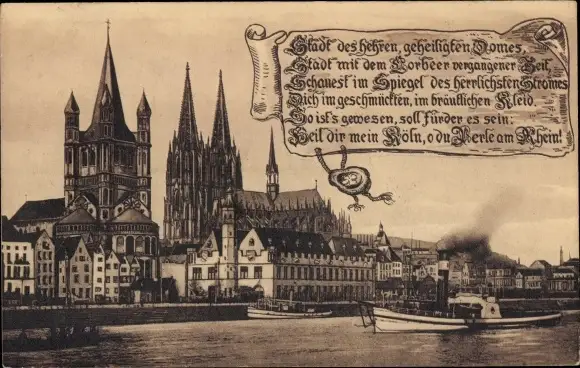 Stadt des hehren, geheiligten Domes,
Stadt mit dem Lorbeer vergangener Zeit,
Schauest im Spiegel des herrlichsten Stromes
Dich im geschmückten, im bräutlichen Kleid.
So ist's gewesen, soll fürder es sein:
Heil dir mein Köln, o du Perle am Rhein!